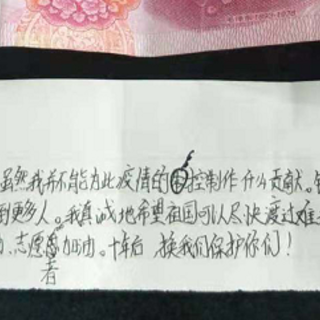 虽然我并不能为此疫情的控制作什么贡献。
到更多人。我真诚地希望祖国可以尽快渡过难
、志愿者加油。十年后，换我们保护你们！